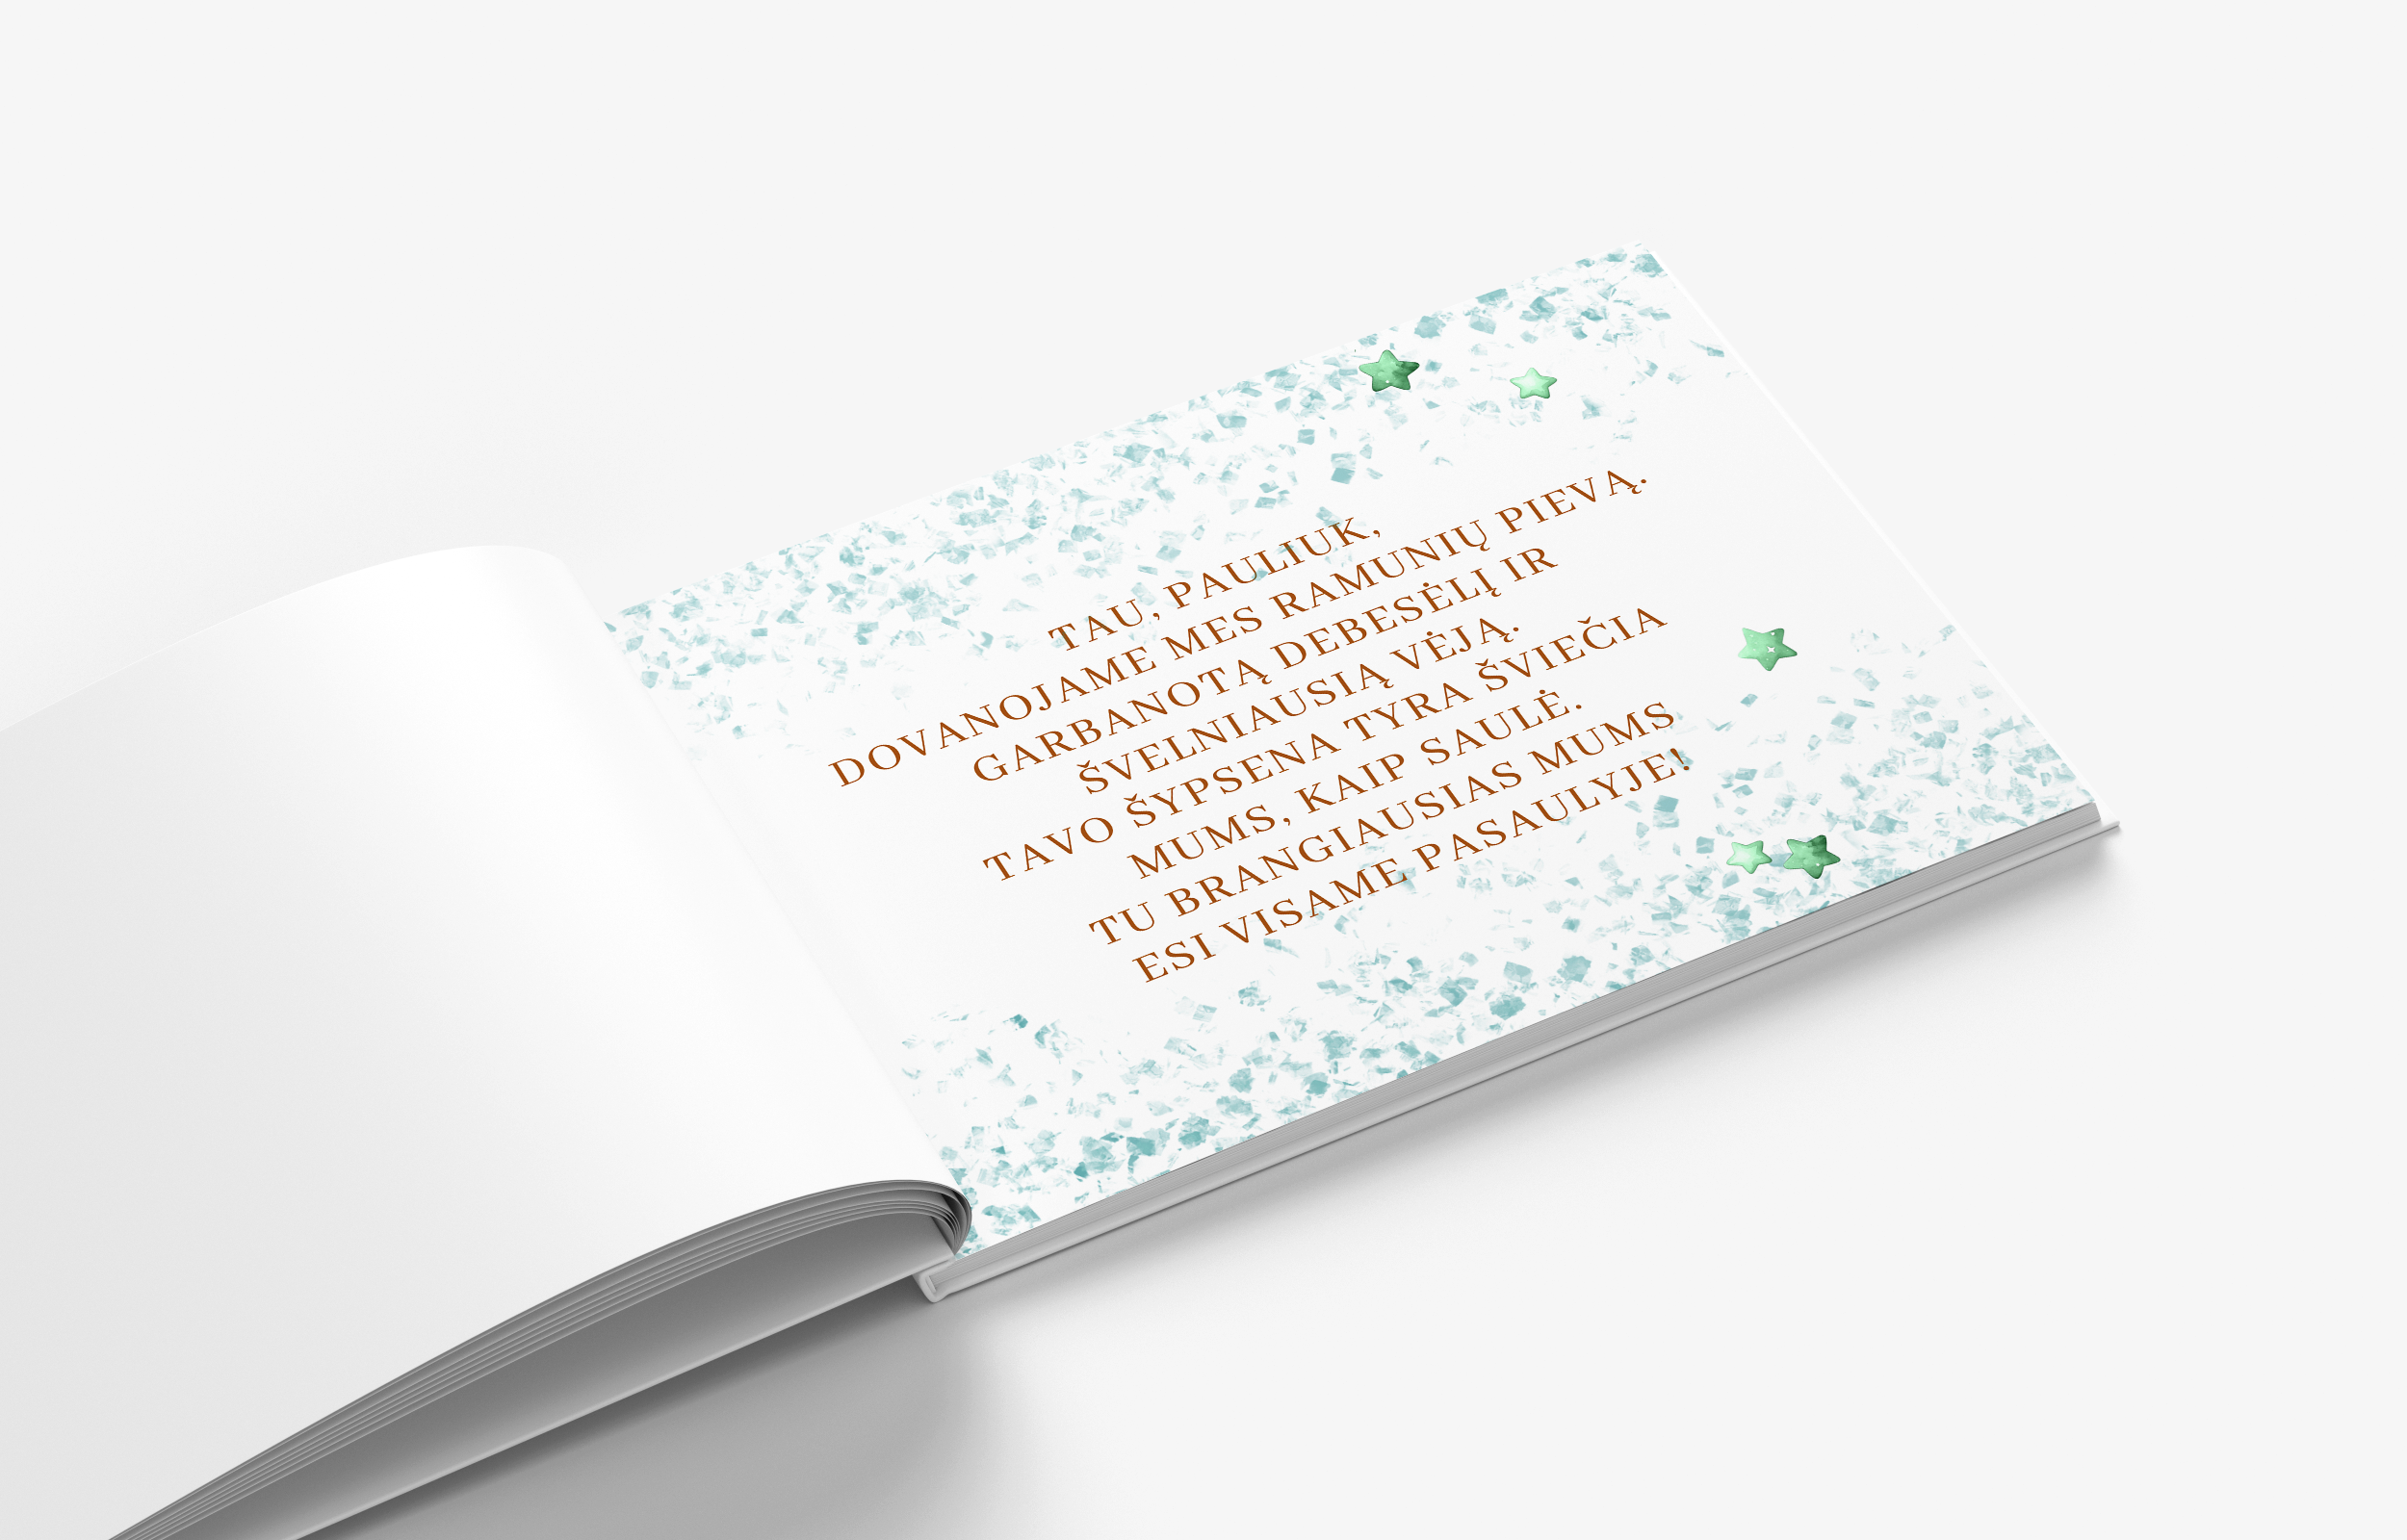 TAU, PAULIUK,
DOVANOJAME MES RAMUNIŲ PIEVĄ.
GARBANOTĄ DEBESĖLĮ IR
ŠVELNIAUSIĄ VĖJĄ.
TAVO ŠYPSENA TYRA ŠVIEČIA
MUMS, KAIP SAULĖ.
TU BRANGIAUSIAS MUMS
ESI VISAME PASAULYJE!